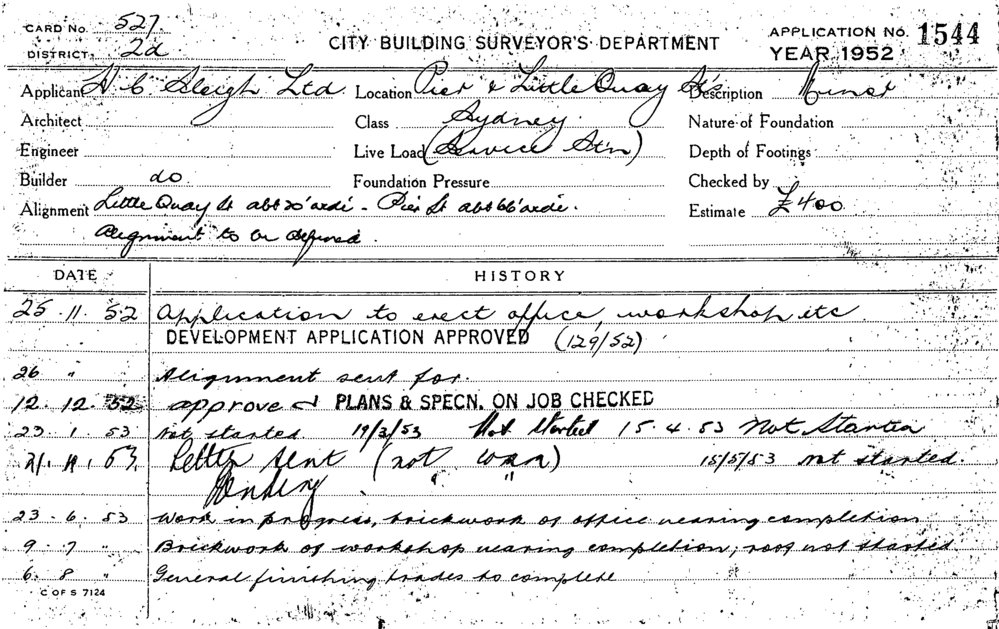 CARD No. 527
DISTRICT 2d
CITY BUILDING SURVEYOR'S DEPARTMENT
APPLICATION No. 1544
YEAR 1952
Applicant H C Sleigh Ltd Location Pier & Little Quay Sts Description Minor
Architect Class Sydney. Nature of Foundation
Engineer Live Load (Service Stn) Depth of Footings
Builder do Foundation Pressure Checked by
Alignment Little Quay St abt 20' - Pier St abt 66' Estimate £400
Alignment to be defined.
DATE HISTORY
25 . 11 . 52 Application to erect office, workshop etc
DEVELOPMENT APPLICATION APPROVED (129/52)
26 " Alignment sent for.
12. 12. 52 approved PLANS & SPECN. ON JOB CHECKED
23 . 1 . 53 Not started 19/3/53 Not Started 15.4.53 Not Started
53 Letter sent (not 15/5/53 not started.
" "
23 . 6 . 53 Work in progress, brickwork of office nearing completion
9 . 7 " Brickwork of workshop nearing completion, roof not started
6. 8 " General finishing trades to complete
C OF S 7124